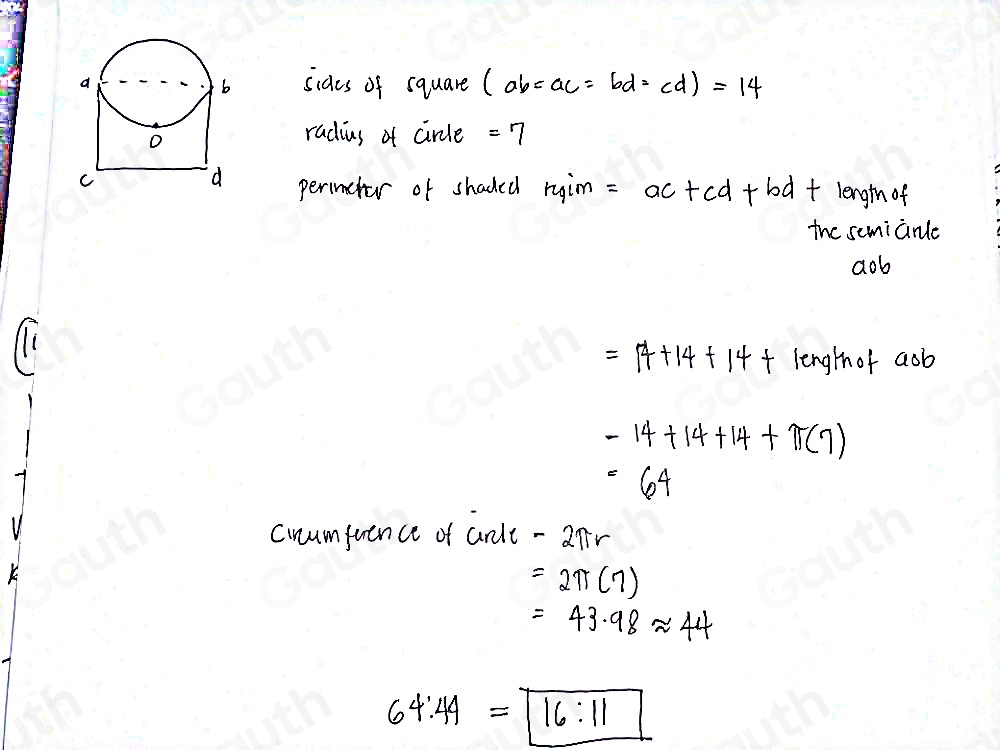 a b
O
c d
sides of square (ab = ac = bd = cd) = 14
radius of circle = 7
perimeter of shaded region = ac + cd + bd + length of
the semicircle
aob
= 14 + 14 + 14 + length of aob
- 14 + 14 + 14 + π(7)
= 64
Circumference of circle - 2πr
= 2π(7)
= 43.98 ≈ 44
64:44 = 16:11
Gauth